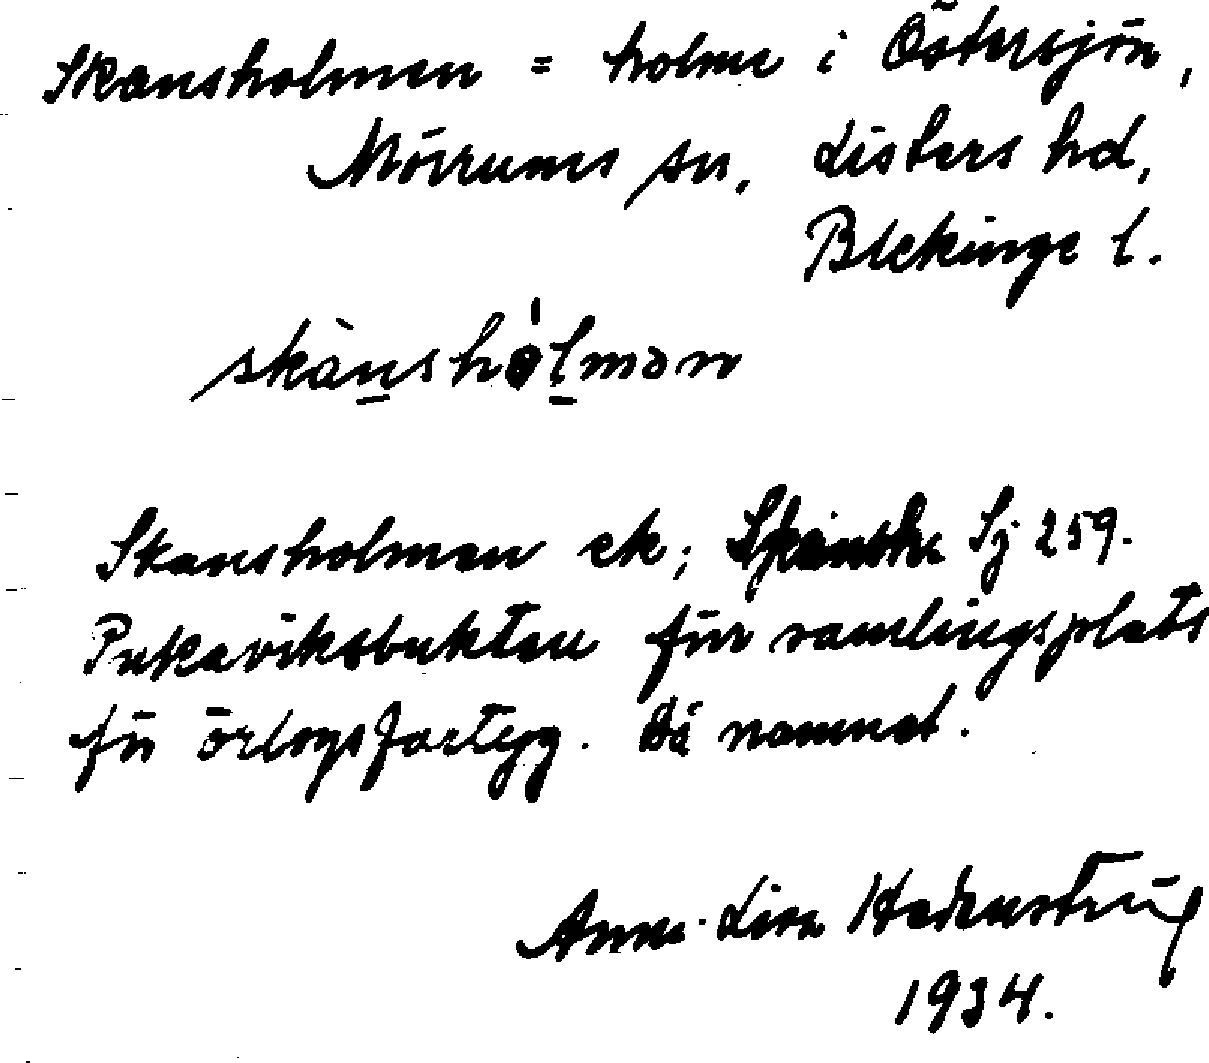 Skansholmen = holme i Östersjön,
Mörrums sn, Listers hd,
Blekinge l.
skànshòlmən
Skansholmen ek; Sj 259.
Pukaviksbukten förr samlingsplats
för örlogsfartyg. Då namnet.
Anna-Lisa
1934.